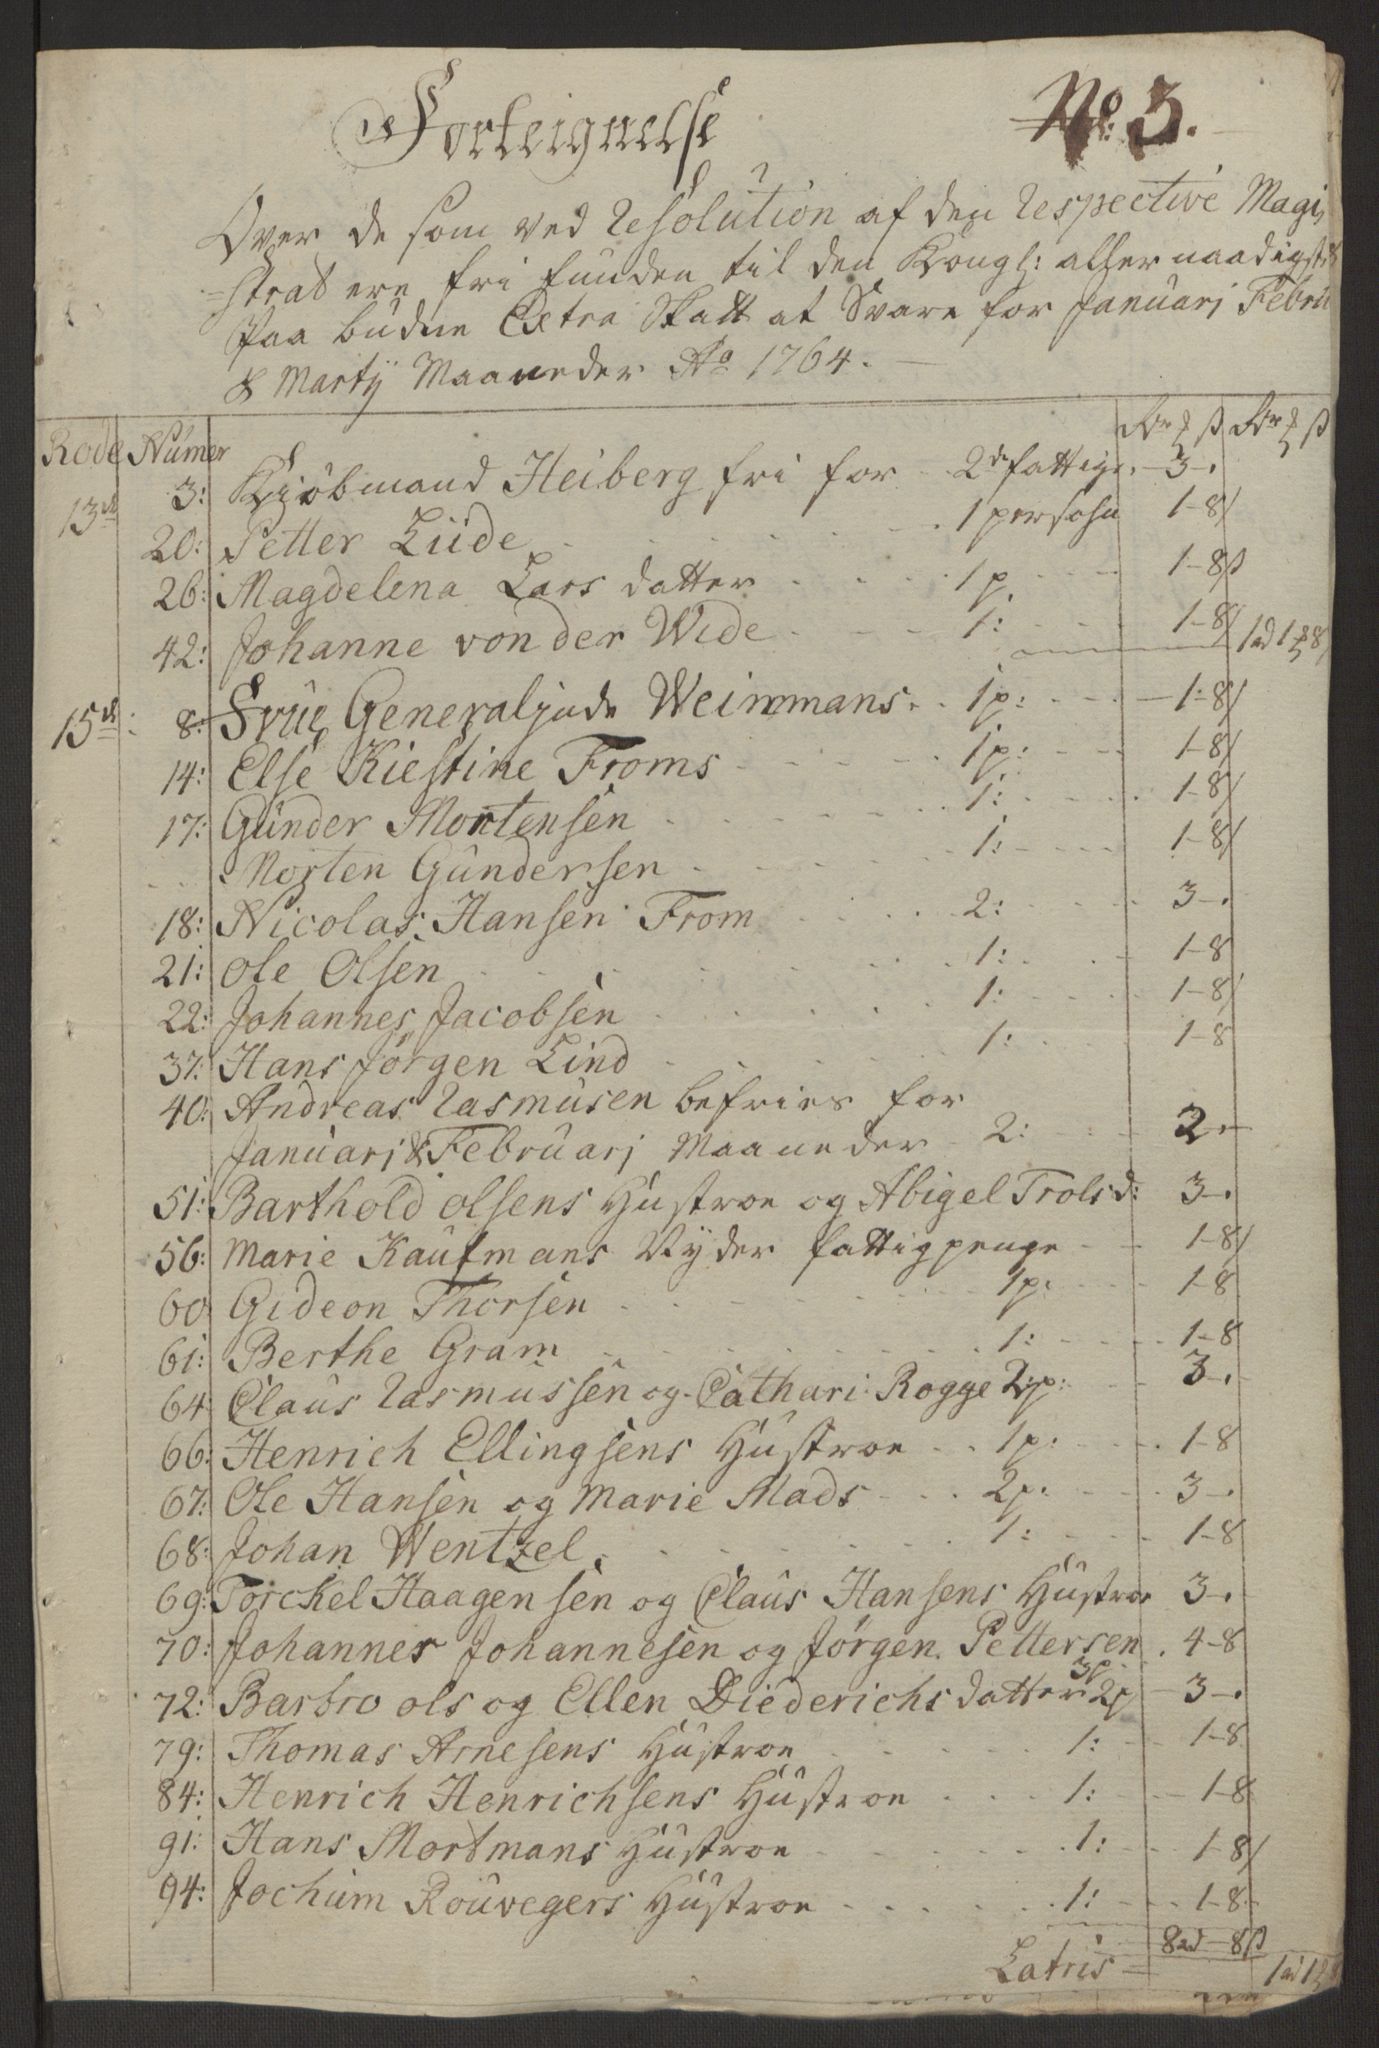 Forteignelse
No: 3.
Over de som ved Resolution af den Respective Magi
strat ere fri funden til den Kongl: allernaadigst
Paa budne Extra Skatt at Svare for Januarj Febru
& Martÿ Maaneder Ao 1764.
Rode Numer
13de 3: Kiöbmand Heiberg fri for 2de fattige. 3-.
20: Petter Lüde 1 persohn 1-8
26: Magdelena Lars datter 1p 1-8ß
42: Johanne von der Wide 1: 1-8
15de: 8: Frue Generaljnde Weinmans 1p: 1-8
14: Else Kiestine Froms 1p: 1-8
17: Gunder Mortensen 1: 1-8
Morten Gundersen 1: 1-8
18: Nicolas Hansen From 2: 3-.
21: Ole Olsen 1: 1-8
22: Johannes Jacobsen 1: 1-8
37: Hans Jørgen Lind 1: 1-8
40: Andreas Rasmusen befries for
Januarj & Februarj Maaneder 2: 2.-
51: Barthold olsens Hustroe og Abigel Trolsd: 3-.
56: Marie Kaufmans Nÿder fattigpenge 1-8
60 Gideon Thorsen 1p: 1-8
61: Berthe Gram 1: 1-8
64 Claus Rasmussen og Cathari: Rogge 2p: 3-.
66: Henrich Ellingsens Hustroe 1p: 1-8
67: Ole Hansen og Marie Mads 2p: 3-.
68: Johan Wentzel 1: 1-8
69: Torckel Haagensen og Claus Hansens Hustroe 3-.
70: Johannes Johannesen og Jørgen Pettersen 3p 4-8
72: Barbro ols og Ellen Diederichs datter 2p 3-.
79: Thomas Arnesens Hustroe 1: 1-8
84: Henrich Henrichsens Hustroe 1: 1-8
91: Hans Mortmans Hustroe 1: 1-8
94: Jochum Rouvegers Hustroe 1: 1-8
Latris 8rd-8ß